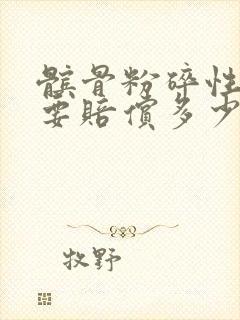 髌骨粉碎性
要赔偿多少
牧野